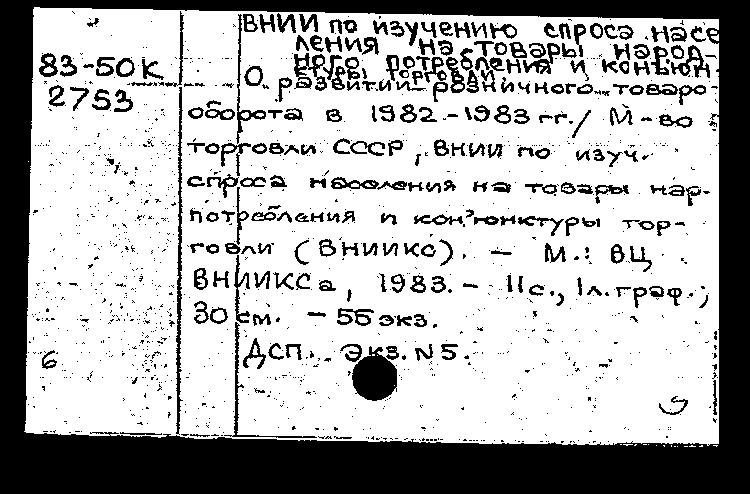 ВНИИ по изучению спроса насе
ления на товары народ-
ного потребления и конъюн-
ктуры торговли
83-50К
2753
О развитии розничного товаро-
оборота в 1982-1983 гг. / М-во
торговли СССР, ВНИИ по изуч.
спроса населения на товары нар.
потребления и кон'юнктуры тор-
говли (ВНИИКС). - М.: ВЦ
ВНИИКСа, 1983. - 11 с., 1 л. граф.;
30 см. - 55 экз.
6
ДСП. Экз. N 5.